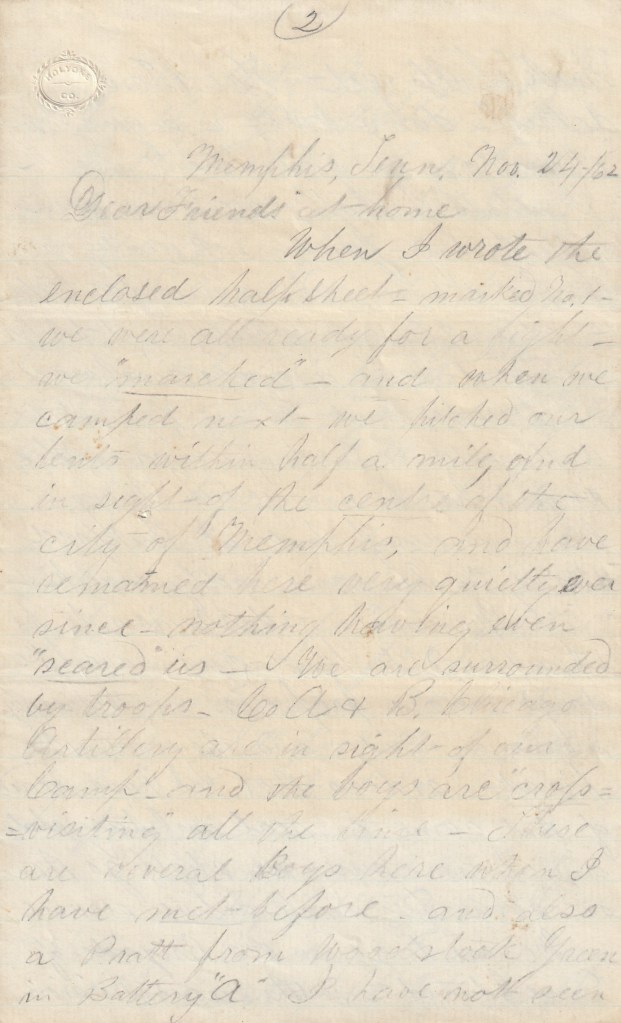 2
HOLYOKE
CO.
Memphis, Tenn. Nov. 24 /62
Dear Friends at home
When I wrote the
enclosed half sheet = marked No. 1 -
we were all ready for a fight -
we "marched" - and when we
camped next - we pitched our
tents within half a mile, and
in sight of the centre of the
city of Memphis, and have
remained here very quietly ever
since - nothing having even
"scared" us - We are surrounded
by troops - Co A & B. Chicago
Artillery are in sight of our
Camp - and the boys are "cross=
=visiting" all the time - There
are several Boys here whom I
have met before - and also
a Pratt from Woodstock Green
in Battery "A" I have not seen